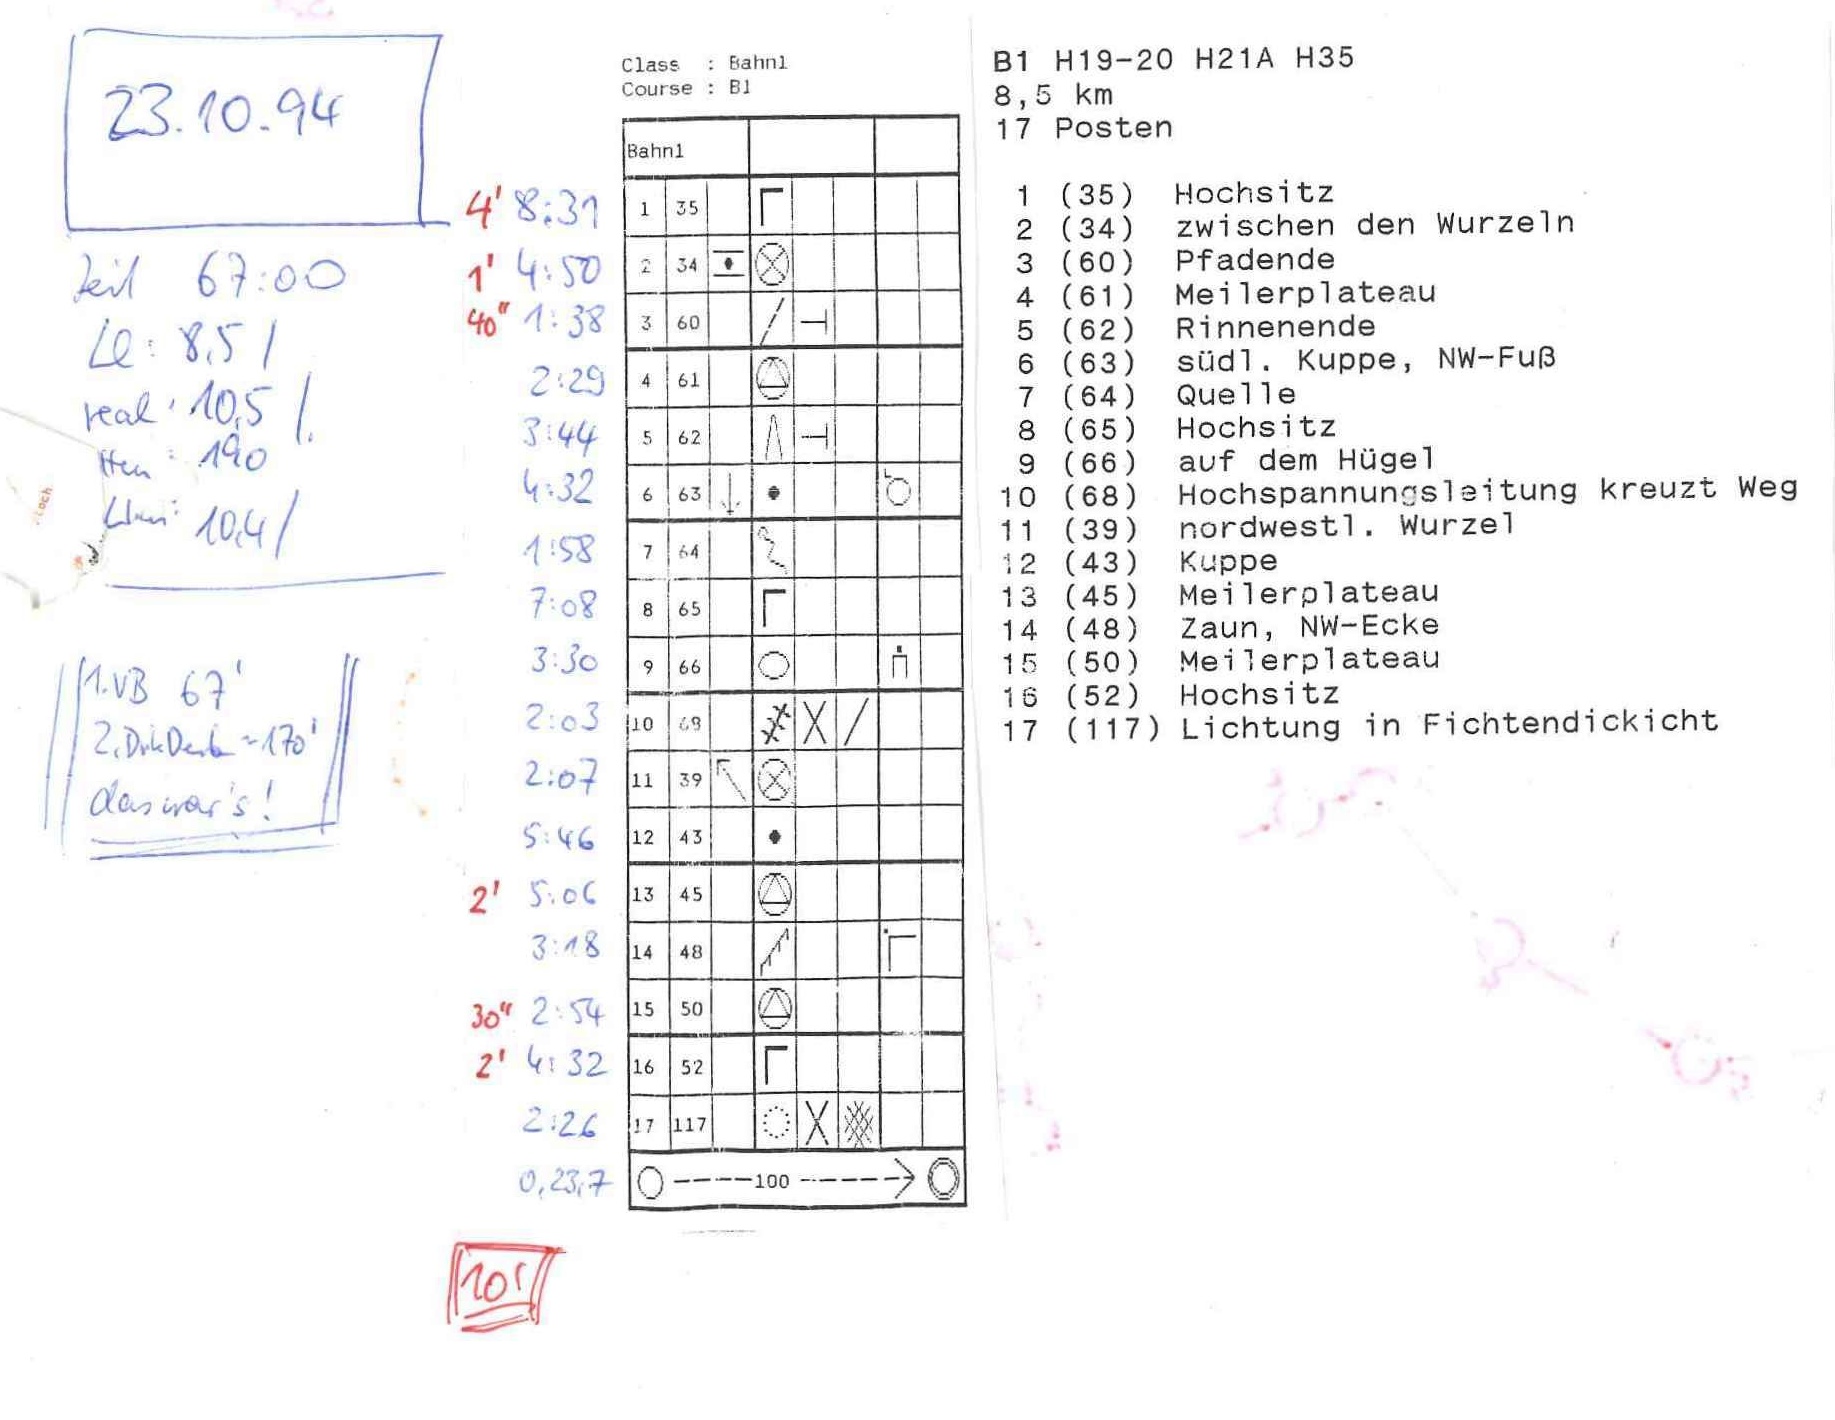 23.10.94
Zeit 67:00
Le: 8,5 /
real: 10,5 /.
Hm: 190
10,4 /
1. VB 67'
2. Dirk 170'
das war's!
Class : Bahn1
Course : B1
Bahn1
4' 8:31 1 35
1' 4:50 2 34
40" 1:38 3 60
2:29 4 61
3:44 5 62
4:32 6 63
1:58 7 64
7:08 8 65
3:30 9 66
2:03 10 68
2:07 11 39
5:46 12 43
2' 5:06 13 45
3:18 14 48
30" 2:54 15 50
2' 4:32 16 52
2:26 17 117
0,23,7 100
10'
B1 H19-20 H21A H35
8,5 km
17 Posten
1 (35) Hochsitz
2 (34) zwischen den Wurzeln
3 (60) Pfadende
4 (61) Meilerplateau
5 (62) Rinnenende
6 (63) südl. Kuppe, NW-Fuß
7 (64) Quelle
8 (65) Hochsitz
9 (66) auf dem Hügel
10 (68) Hochspannungsleitung kreuzt Weg
11 (39) nordwestl. Wurzel
12 (43) Kuppe
13 (45) Meilerplateau
14 (48) Zaun, NW-Ecke
15 (50) Meilerplateau
16 (52) Hochsitz
17 (117) Lichtung in Fichtendickicht